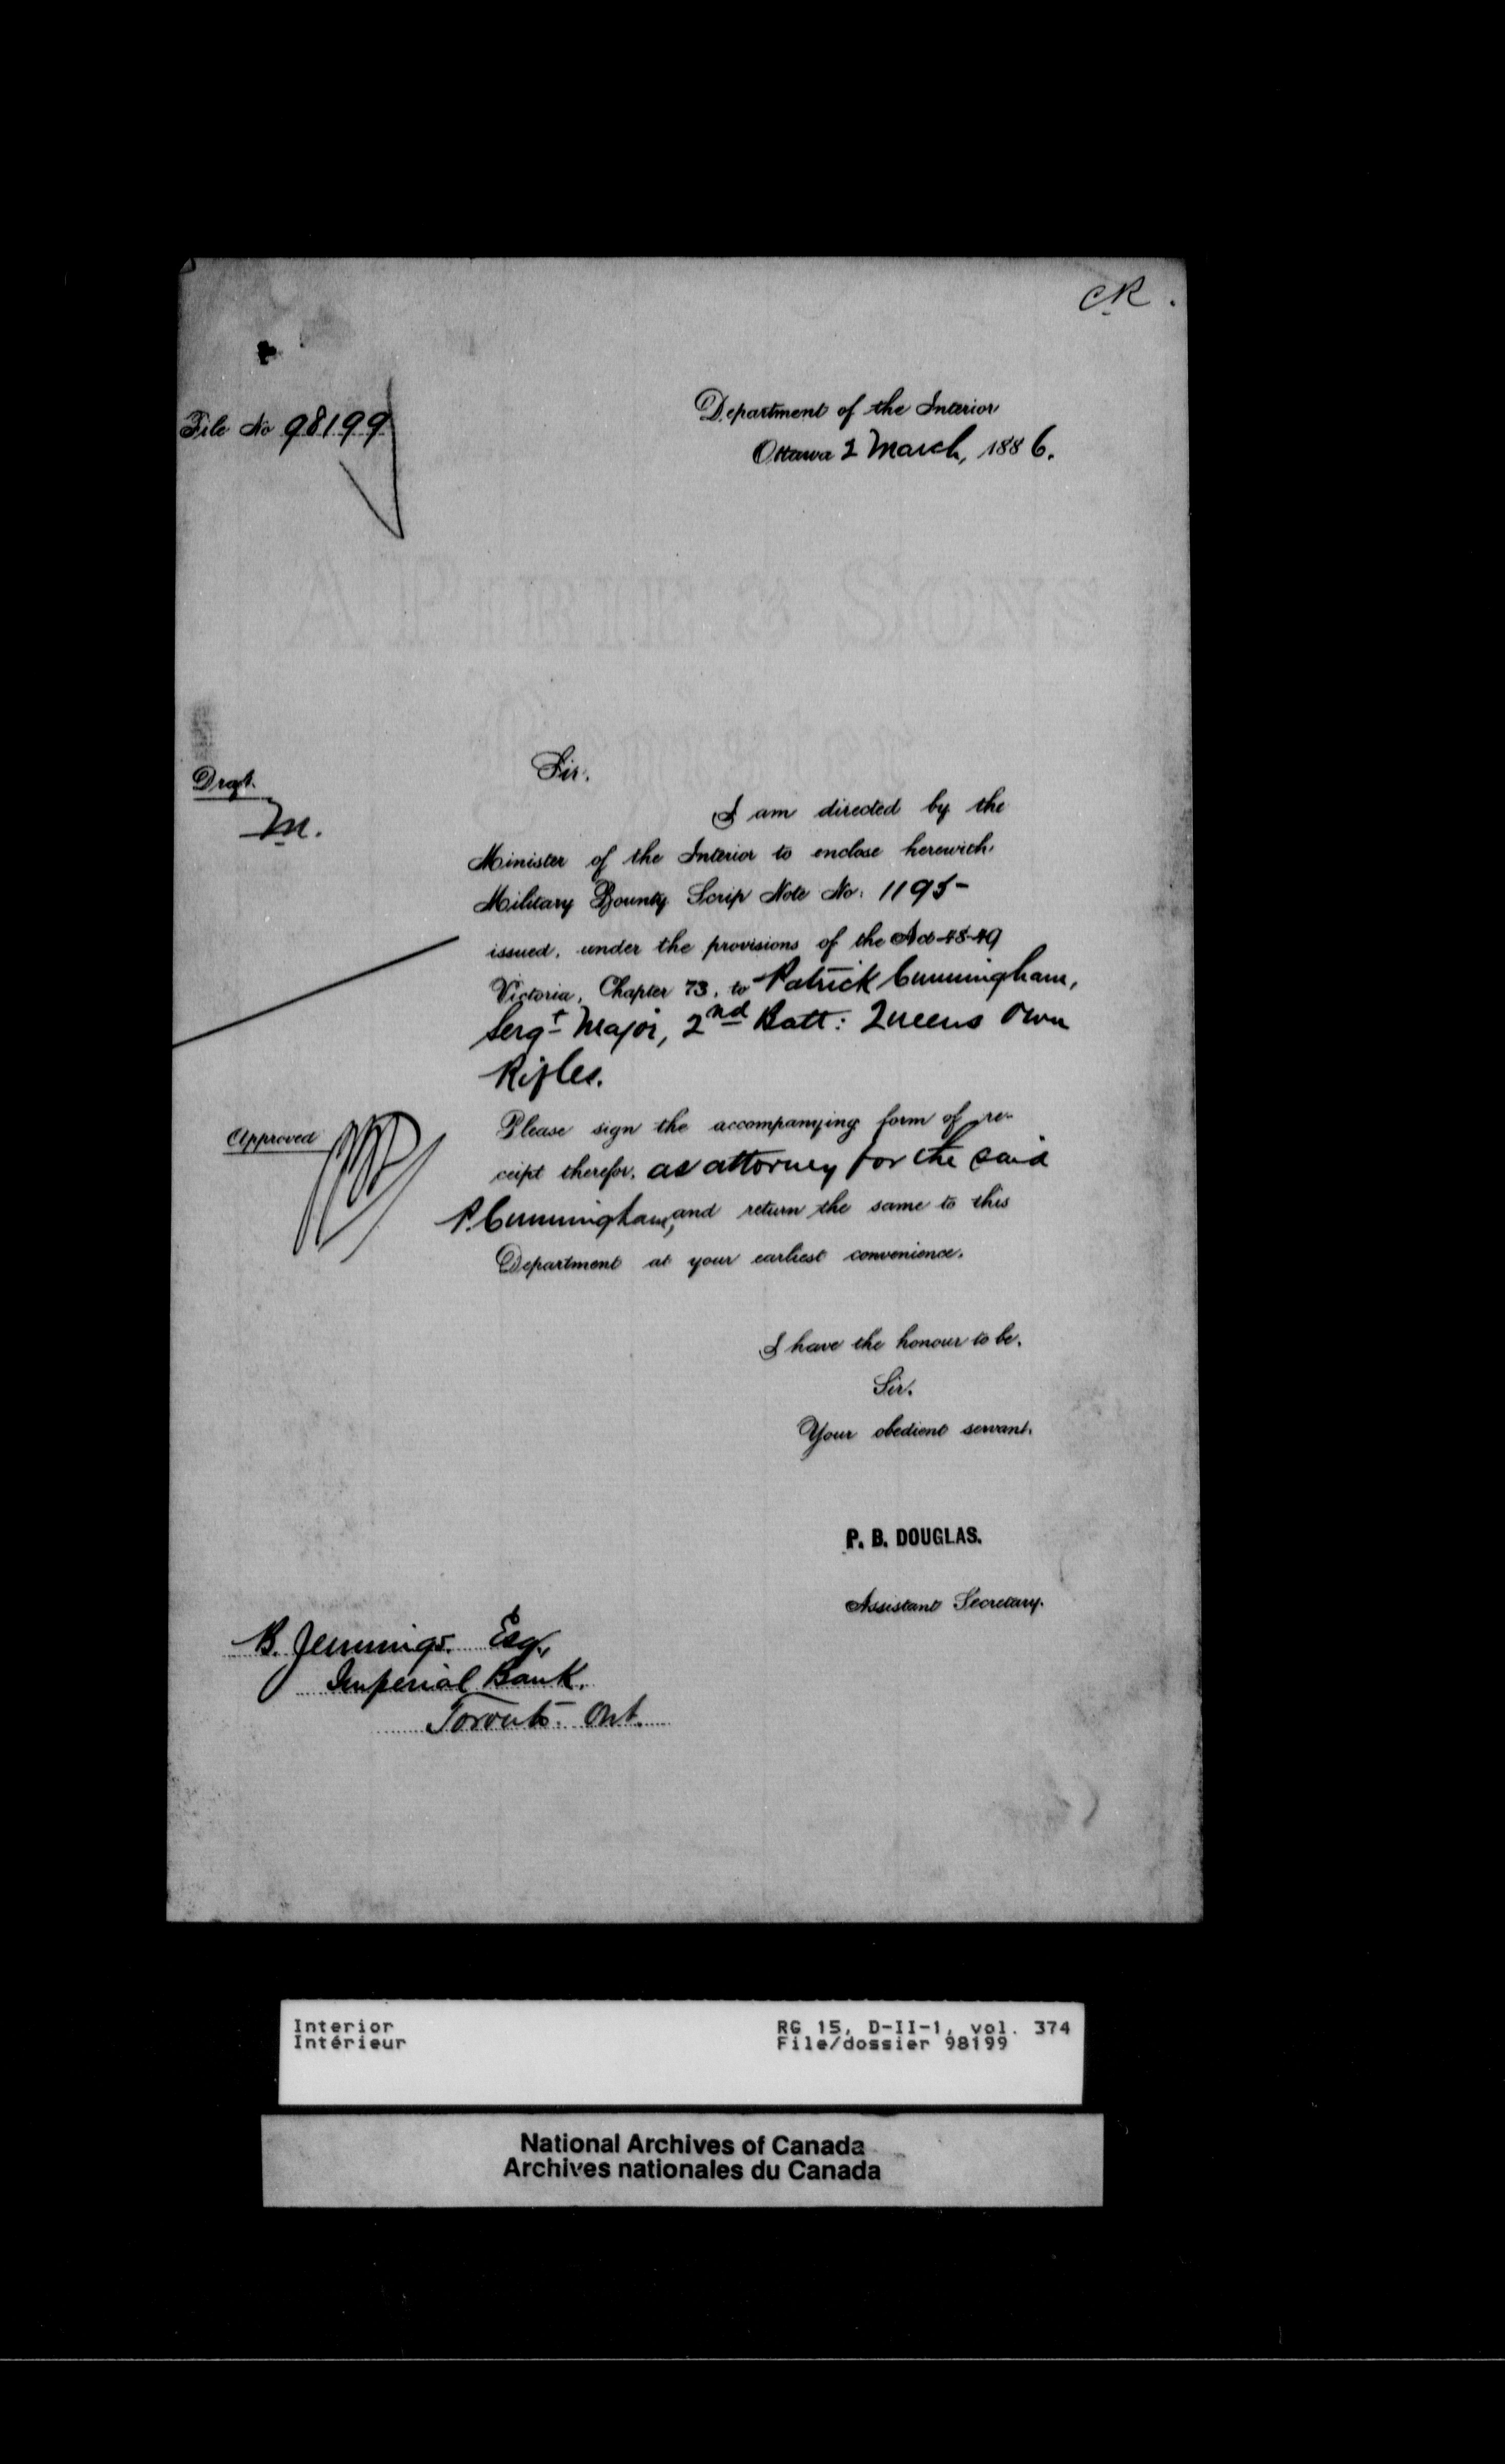 CR.
File No 98199
Department of the Interior
Ottawa 2 March, 1886.
A PIRIE & SONS
Sir,
Draft.
M.
I am directed by the
Minister of the Interior to enclose herewith,
Military Bounty Scrip Note No. 1195-
issued, under the provisions of the Act 48-49
Victoria, Chapter 73, to Patrick Cunningham,
Sergt Major, 2nd Batt: Queens Own
Rifles.
Approved
Please sign the accompanying form of re-
ceipt therefor, as attorney for the said
P. Cunningham, and return the same to this
Department at your earliest convenience.
I have the honour to be,
Sir,
Your obedient servant,
P. B. DOUGLAS.
Assistant Secretary.
B. Jennings. Esq.,
Imperial Bank.
Toronto. Ont.
Interior
Intérieur
RG 15, D-II-1, vol. 374
File/dossier 98199
National Archives of Canada
Archives nationales du Canada